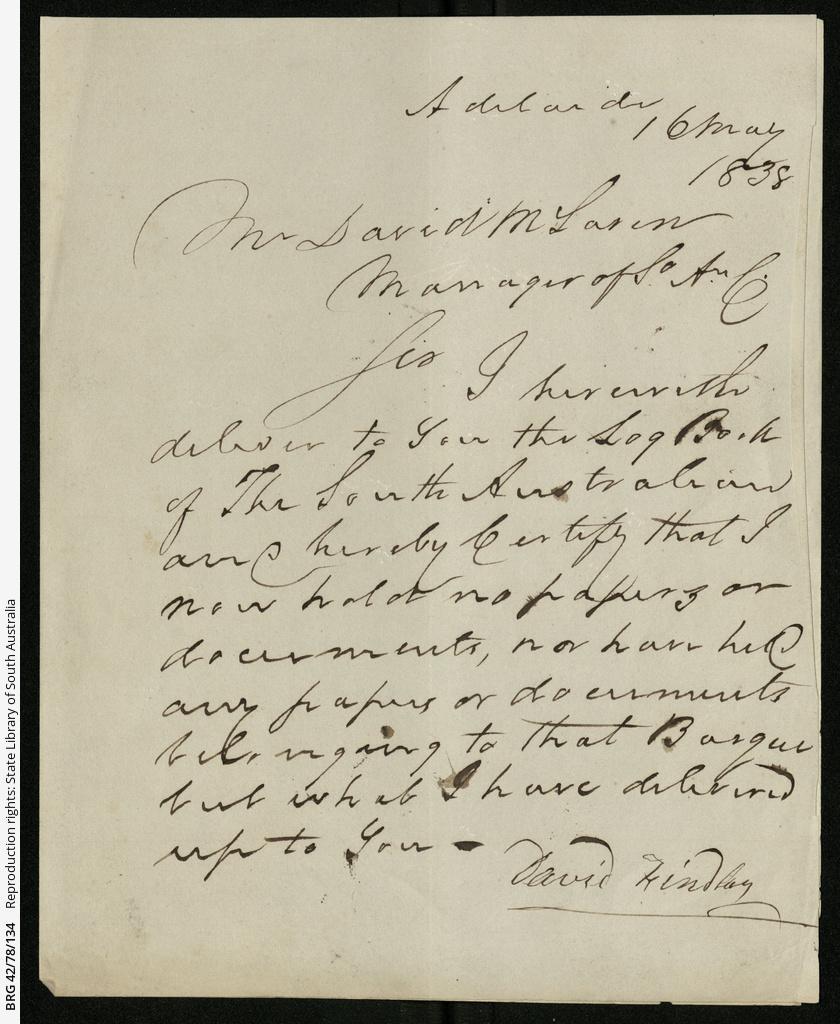 Adelaide
16 May
1838
Mr David McLaren
Manager of So An C.
Sir
I herewith
deliver to You the Log Book
of The South Australian
and hereby Certify that I
now hold no papers or
documents, nor have held
any papers or documents
belonging to that Barque
but what I have delivered
up to You -
David Findlay
BRG 42/78/134 Reproduction rights: State Library of South Australia